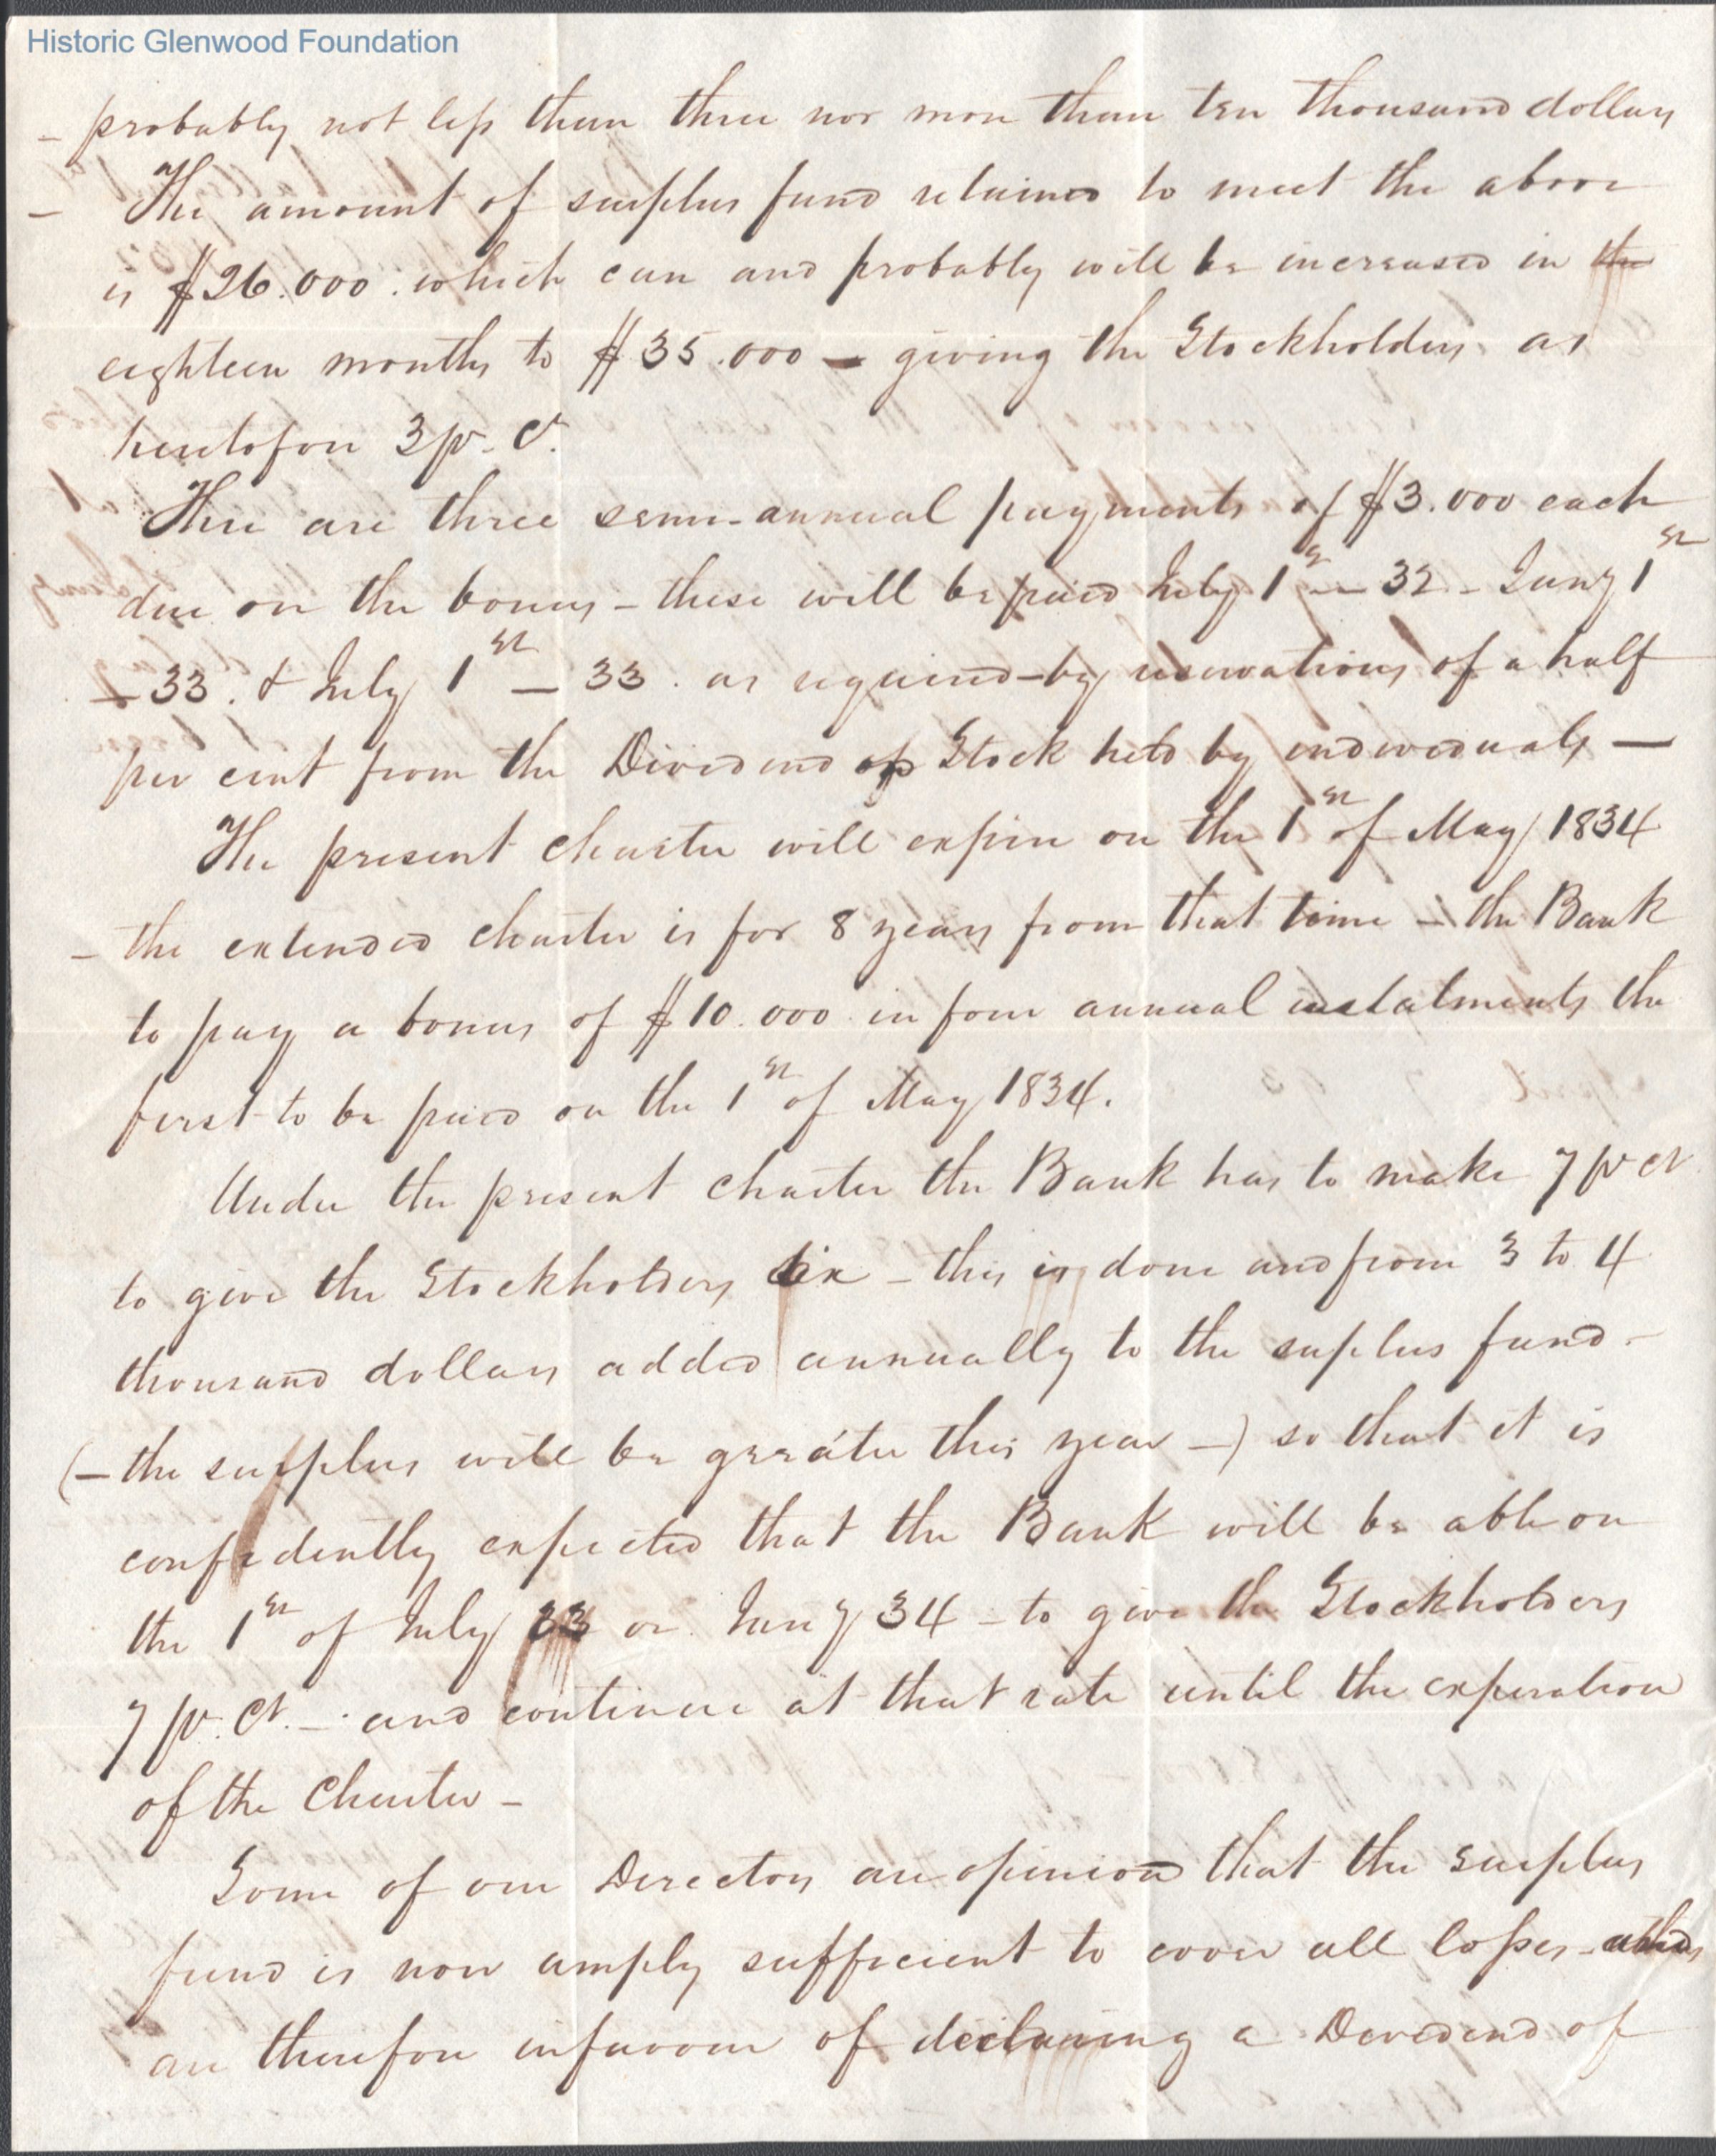 Historic Glenwood Foundation
- probably not less than three nor more than ten thousand dollars
- The amount of surplus fund retained to meet the above
is $26.000. which can and probably will be increased in the
eighteen months to $35.000 - giving the Stockholders as
heretofore 3 pr. Ct.
There are three semi-annual payments of $3.000 each
due on the bonus - these will be paid July 1st - 32 - Jany 1st
- 33. & July 1st - 33. as required - by reservations of a half
per cent from the Dividend of Stock held by individuals -
The present charter will expire on the 1st of May 1834
- the extended charter is for 8 years from that time - the Bank
to pay a bonus of $10.000 in four annual instalments the
first to be paid on the 1st of May 1834.
Under the present charter the Bank has to make 7 pr ct
to give the Stockholders six - this is done and from 3 to 4
thousand dollars added annually to the suplus fund -
(- the surplus will be greater this year -) so that it is
confidently expected that the Bank will be able on
the 1st of July 33 or Jany 34 - to give the Stockholders
7 pr. Ct. - and continue at that rate until the expiration
of the Charter -
Some of our Directors are opinion that the surplus
fund is now amply sufficient to cover all losses -
are therefore infavour of declaring a Dividend of